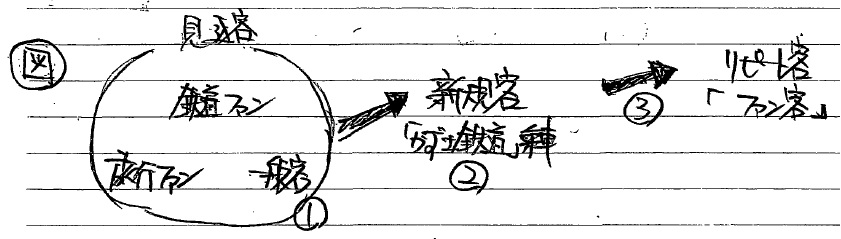 図
見込客
鉄道ファン
旅行ファン 一般客
①
新規客
鉄道」乗車
②
③
リピート客
「ファン客」